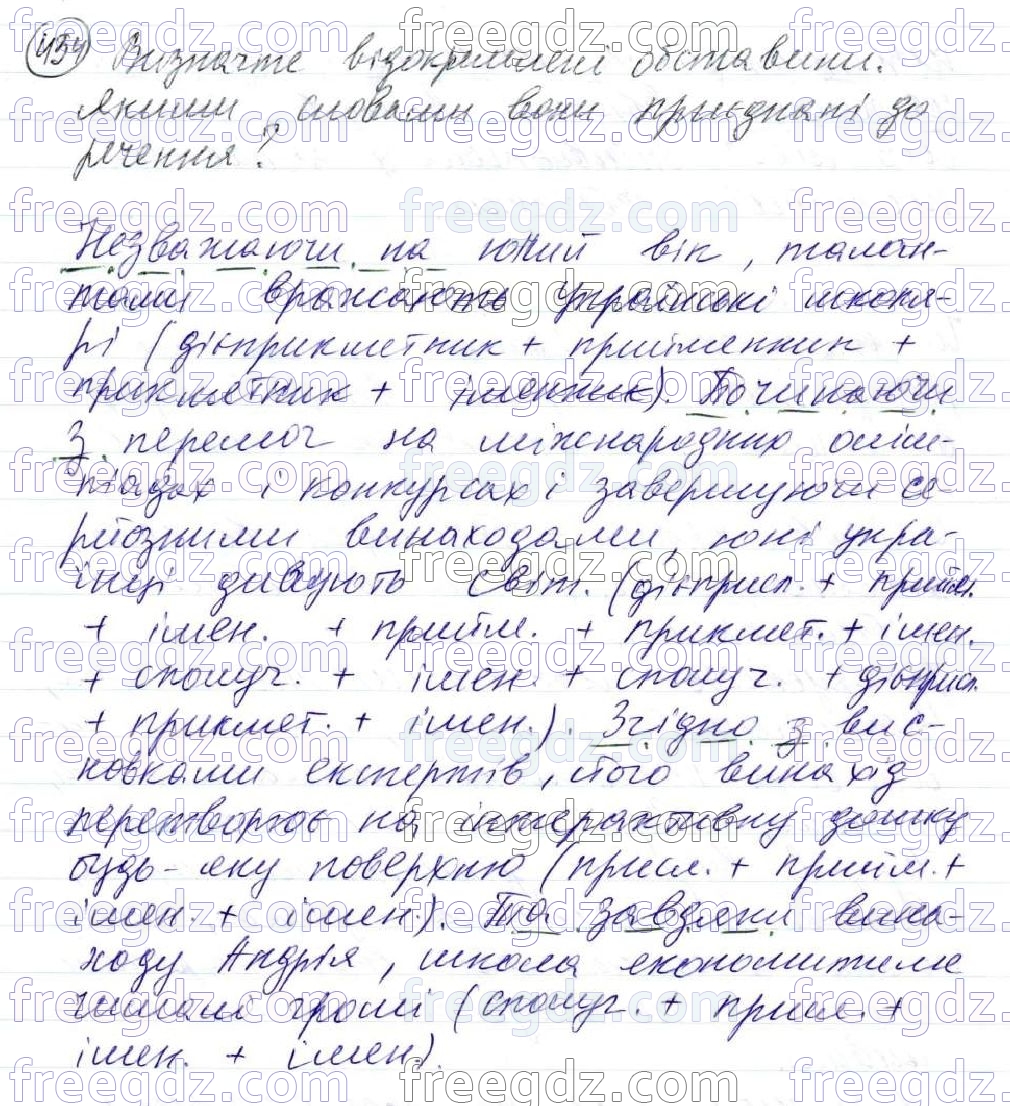 454 Визначте відокремлені обставини.
Якими словами вони приєднані до
речення?
Незважаючи на юний вік, талан-
тами вражають українські школя-
рі (дієприкметник + прийменник +
прикметник + іменник). Починаючи
з перемог на міжнародних олімп-
піадах і конкурсах і завершуючи се-
рйозними винаходами, юні укра-
їнці дивують світ. (дієприсл. + прийм.
+ імен. + прийм. + прикмет. + імен.
+ сполуч. + імен. + сполуч. + дієприсл.
+ прикмет. + імен.). Згідно з вис-
новками експертів, його винахід
перетворює на інтерактивну дошку
будь-яку поверхню (присл. + прийм. +
імен. + імен.). Та завдяки вина-
ходу Андрія, школа економитиме
чималі гроші (сполуч. + прийм. +
імен. + імен.).
freegdz.com